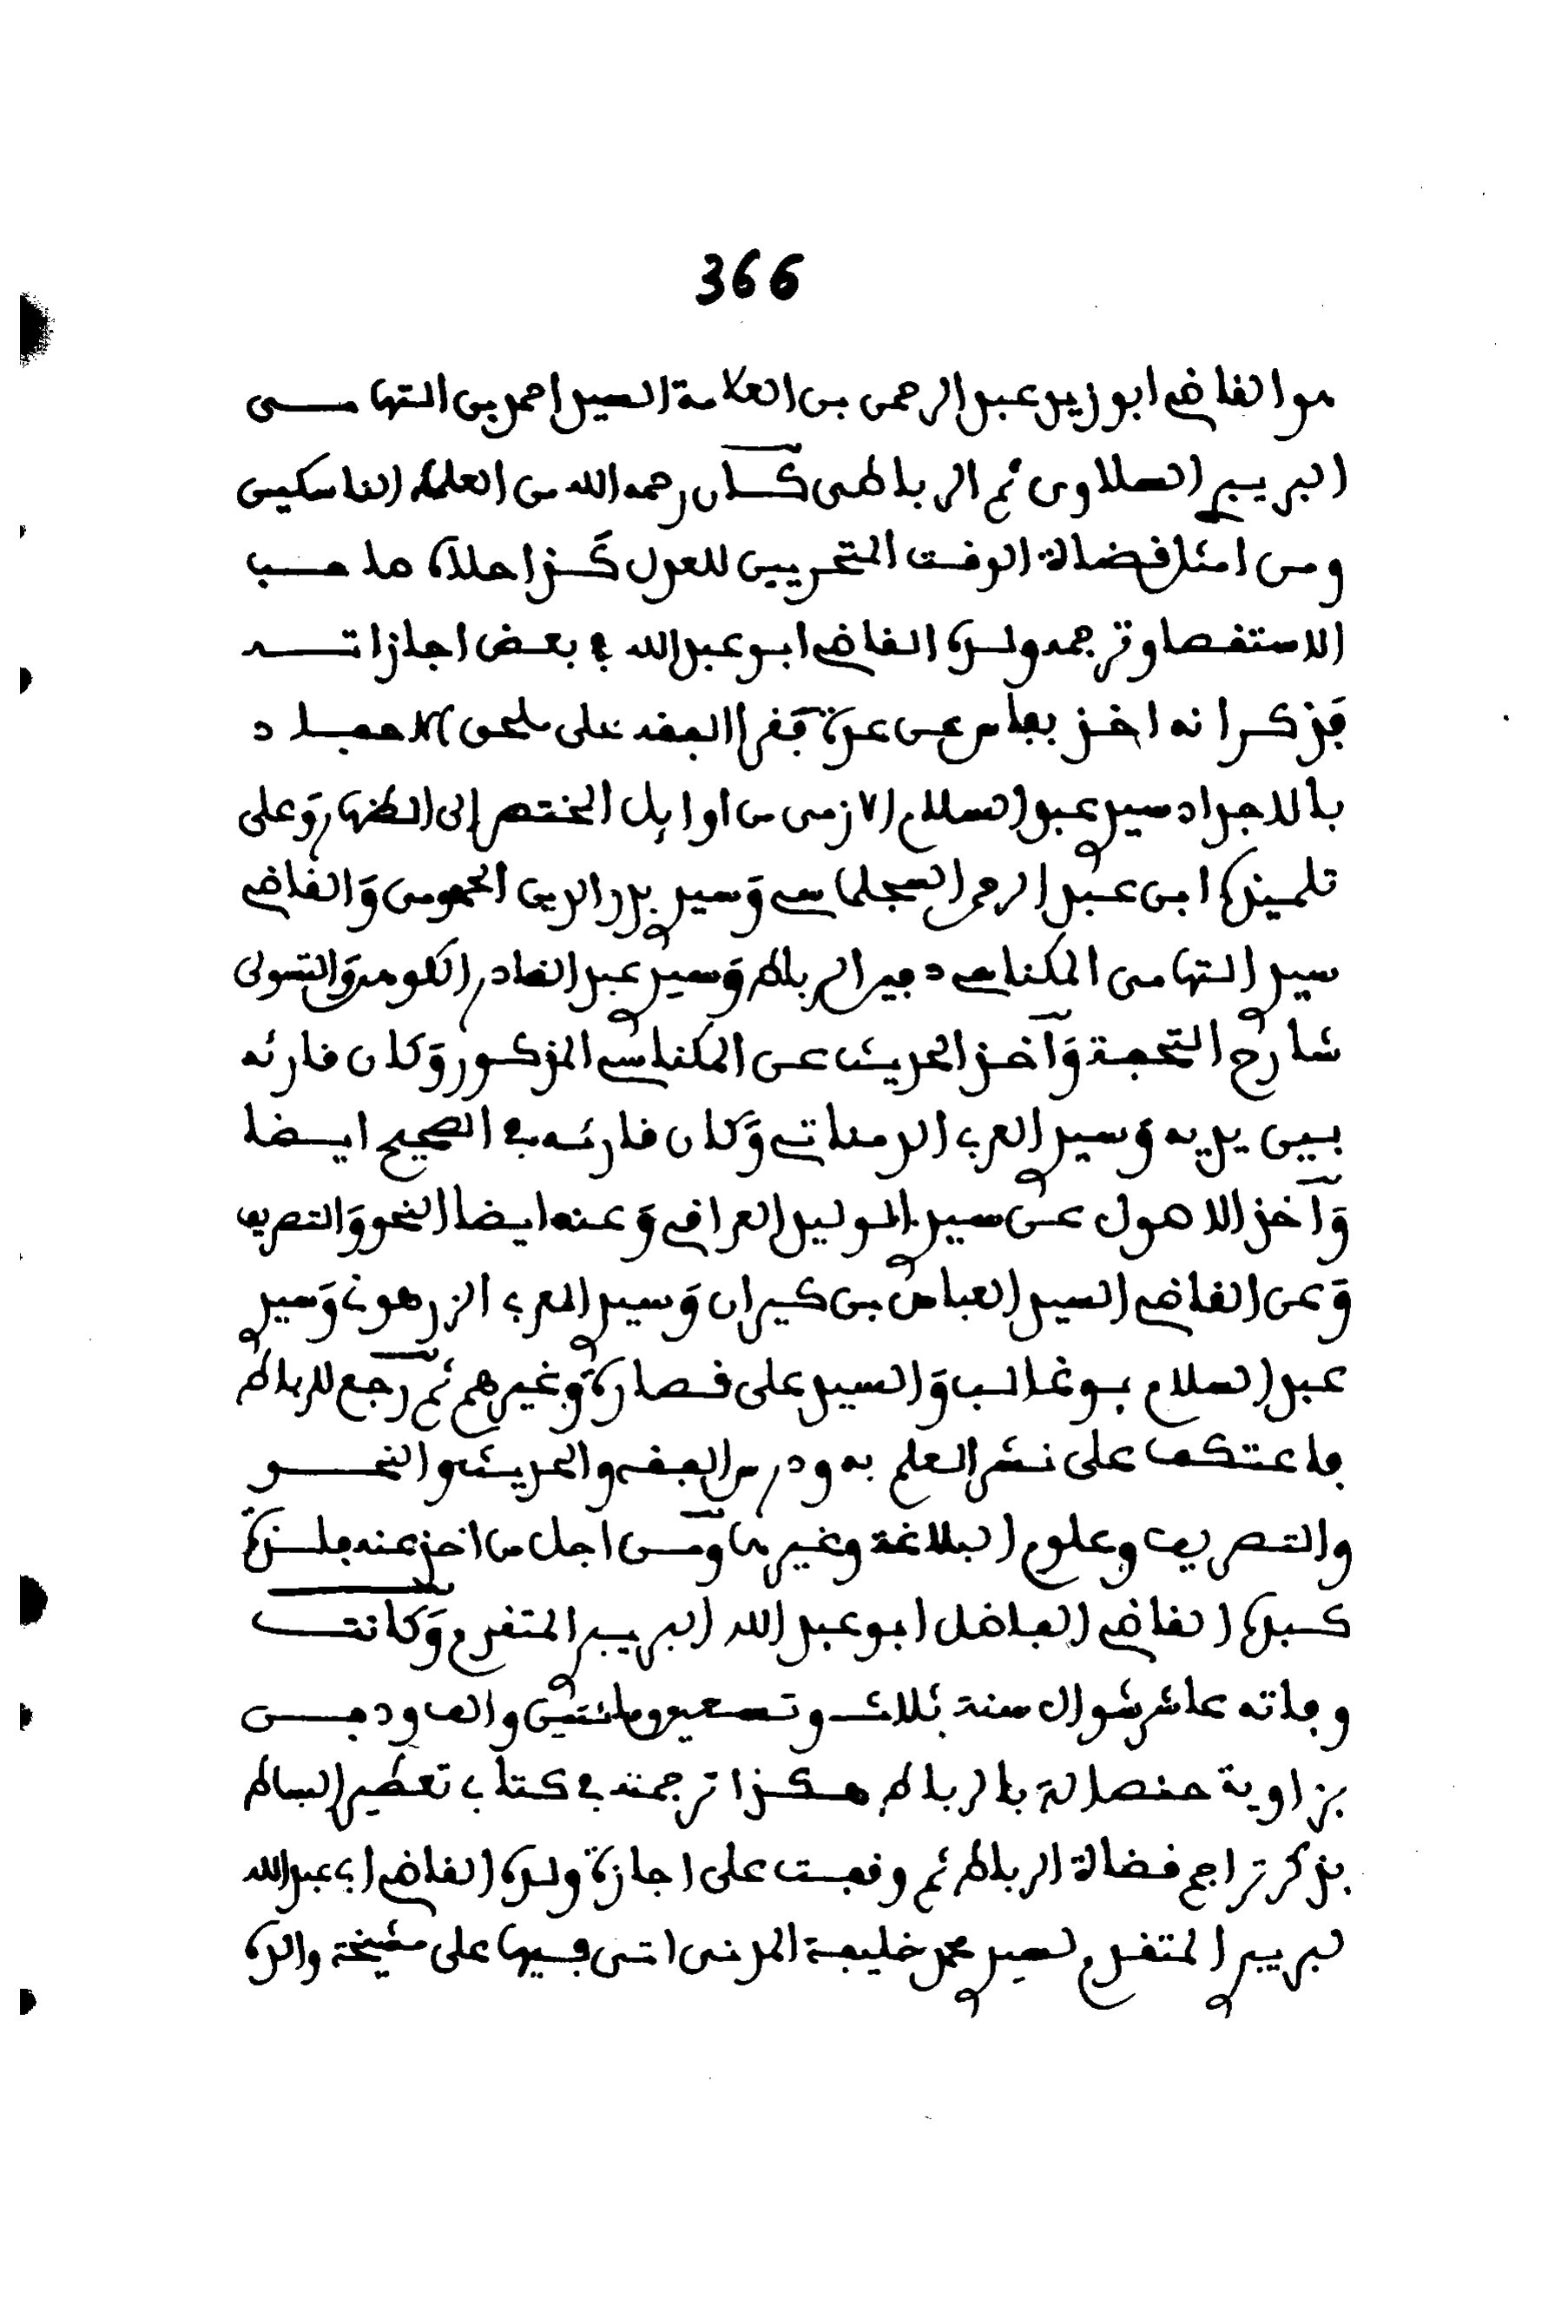 366
هو القاضي ابو زيد عبد الرحمن بن العلامة السيد احمد بن التهامـــي
البريبري السلاوي ثم الرباطي كــان رحمه الله من العلماء الناسكيين
ومن امثل قضاة الوقت المتحريين للعدل كــذا حلاه صاحــب
الاستقصا وترجمه ولده القاضي ابو عبد الله في بعض اجازاتـــه
فذكر انه اخذ بفاس عن عدة فقرا الفقه على ملحق الاحفــاد
بالاجداد سيدي عبد السلام الازمي من اوايل المختصر إلى الظهار وعلى
تلميذه ابن عبد الرحمن السجلماسي وسيدي بدر الدين الحمومي والقاضي
سيدي التهامي المكناسي دفين الرباط وسيدي عبد القادر الكوهن والتسولي
شارح التحفة وآخذ الحديث عن المكناسي المذكور وكان قارئه
بيين يديه وسيدي العربي الدمناتي وكان قارئــه في الصحيح ايــضا
وآخذ الاصول عــن سيدي الوليد العراقي وعنه ايضا النحو والتصريف
وعن القاضي السيد العباس بن كيران وسيدي العربي الزرهوني وسيدي
عبد السلام بــوغالــب والسيد على قــصارة وغيرهم ثم رجع للرباط
فاعتكف على نــشر العلم به ودرس الفقه والحديث والنحــــو
والتــصريف وعلوم البلاغة وغيرها ومــن اجل من اخذ عنه فلــذة
كــبده القاضي الفاضل ابو عبد الله البريبري المتقدم وكانتــــ
وفاته عاشر شوال سنة ثلاث وتــسعين ومائتين والف ودفـــن
بزاوية حنصالة بالرباط هــكــذا ترجمته في كتاب تعطير البساط
بذكر تراجم قضاة الرباط ثم وقفت على اجازة ولده القاضي ابي عبد الله
لبريبري المتقدم لسيدي محمد خليفة المدني اتى فــيها على مشيخة والده